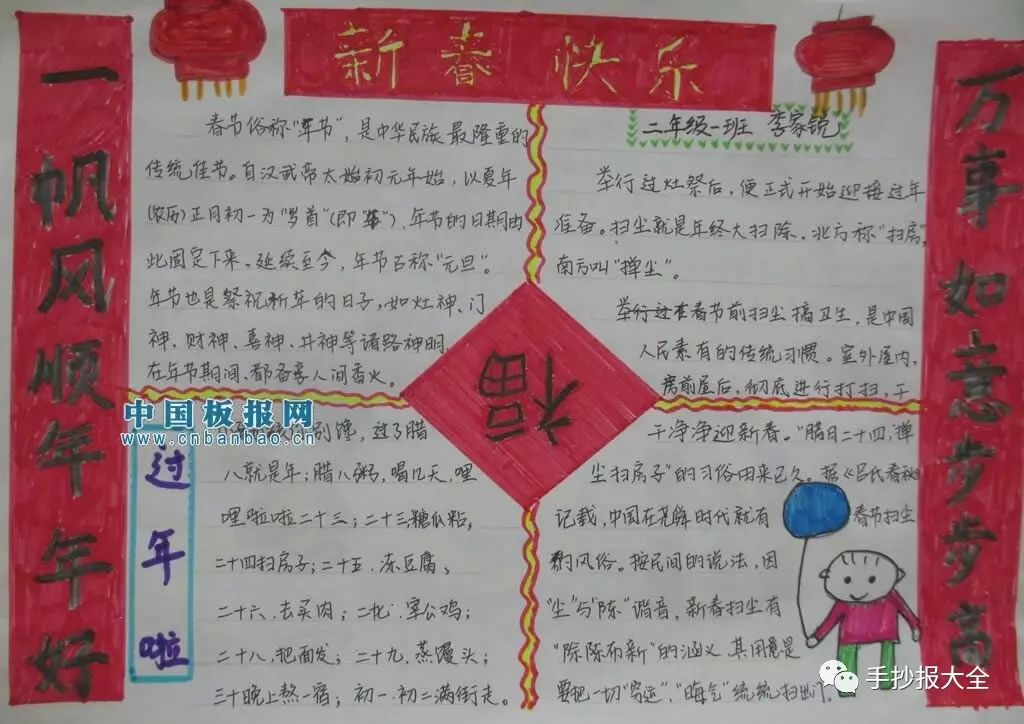 新春快乐
一帆风顺年年好
万事如意步步高
二年级一班 李家锐
春节俗称"年节",是中华民族最隆重的
传统佳节。自汉武帝太始初元年始,以夏年
(农历)正月初一为"岁首"(即"年"),年节的日期由
此固定下来,延续至今,年节古称"元旦"。
年节也是祭祝新年的日子,如灶神、门
神、财神、喜神、井神等诸路神明,
在年节期间、都备享人间香火。
举行过灶祭后,便正式开始迎接过年
准备。扫尘就是年终大扫除,北方称"扫房",
南方叫"掸尘"。
举行过在春节前扫尘搞卫生,是中国
人民素有的传统习惯。室外屋内,
房前屋后,彻底进行打扫,干
福
中国板报网
www.cnbanbao.cn
过年啦
别馋,过了腊
八就是年;腊八粥,喝几天,哩
哩啦啦二十三;二十三糖瓜粘,
二十四扫房子;二十五.冻豆腐;
二十六.去买肉;二七.宰公鸡;
二十八,把面发;二十九,蒸馒头;
三十晚上熬一宿;初一.初二满街走。
干净净迎新春。"腊月二十四,掸
尘扫房子"的习俗由来已久。据《吕氏春秋》
记载,中国在尧舜时代就有 春节扫尘
的风俗。按民间的说法,因
"尘"与"陈"谐音,新春扫尘有
"除陈布新"的涵义 其用意是
要把一切"穷运"、"晦气"统统扫出门。
手抄报大全